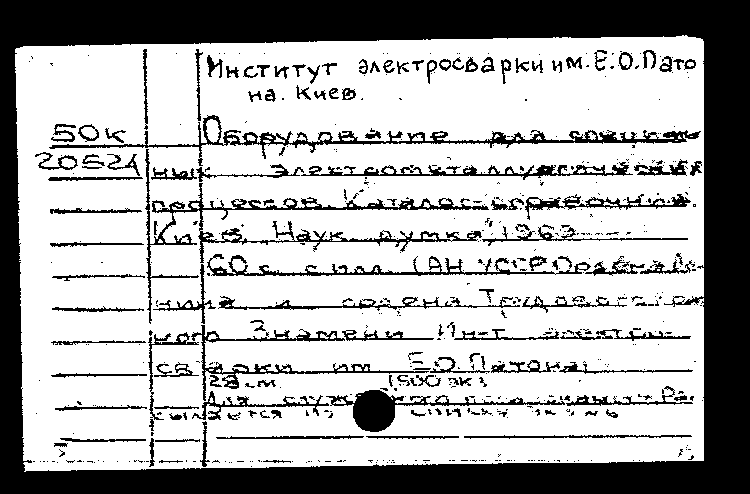 Институт электросварки им. Е.О. Пато
на. Киев.
50к Оборудование для специаль
20624 ных электрометаллургических
процессов. Каталог-справочник.
Киев, "Наук. думка", 1969
60 с. с илл. (АН УССР. Ордена Ле-
нина и ордена Трудового Крас
ного Знамени Ин-т электро-
сварки им. Е.О. Патона)
28 см. 1500 экз.
Для служебного пользования. Ра
сылается по списку